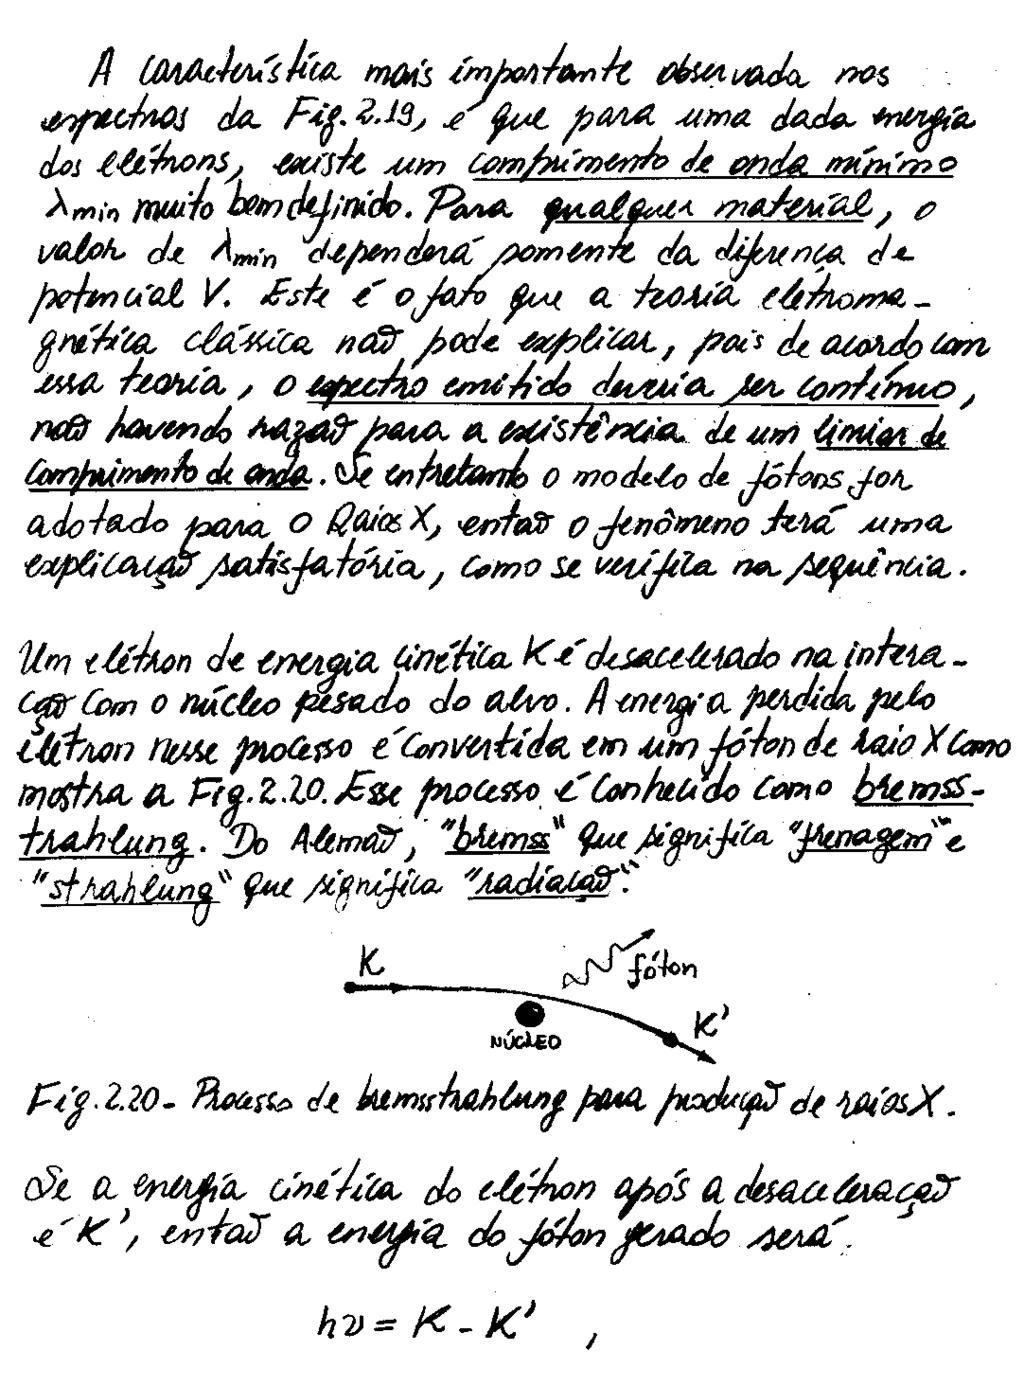 A característica mais importante observada nos
espectros da Fig. 2.19, é que para uma dada energia
dos elétrons, existe um comprimento de onda mínimo
λmin muito bem definido. Para qualquer material, o
valor de λmin dependerá somente da diferença de
potencial V. Este é o fato que a teoria eletroma-
gnética clássica não pode explicar, pois de acordo com
essa teoria, o espectro emitido deveria ser contínuo,
não havendo razão para a existência de um limiar de
comprimento de onda. Se entretanto o modelo de fótons for
adotado para o Raios X, então o fenômeno terá uma
explicação satisfatória, como se verifica na sequência.
Um elétron de energia cinética K é desacelerado na intera-
ção com o núcleo pesado do alvo. A energia perdida pelo
elétron nesse processo é convertida em um fóton de raio X como
mostra a Fig. 2.20. Esse processo é conhecido como bremss-
trahlung. Do Alemão, "bremss" que significa "frenagem" e
"strahlung" que significa "radiação".
K
fóton
K'
NÚCLEO
Fig. 2.20 - Processo de bremsstrahlung para produção de raios X.
Se a energia cinética do elétron após a desaceleração
é K', então a energia do fóton gerado será:
hν = K - K' ,